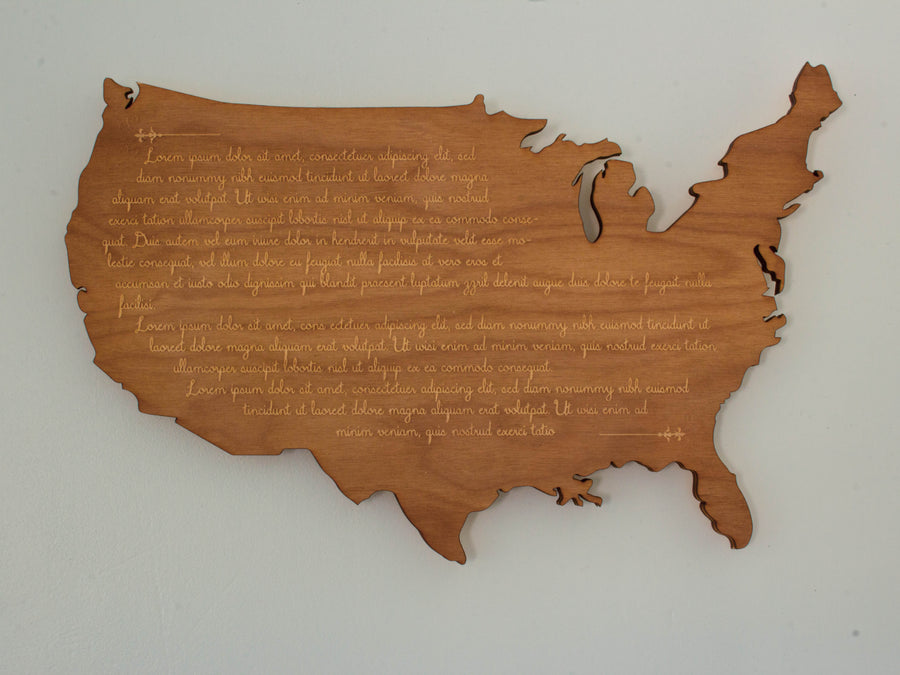 Lorem ipsum dolor sit amet, consectetuer adipiscing elit, sed
diam nonummy nibh euismod tincidunt ut laoreet dolore magna
aliquam erat volutpat. Ut wisi enim ad minim veniam, quis nostrud
exerci tation ullamcorper suscipit lobortis nisl ut aliquip ex ea commodo conse-
quat. Duis autem vel eum iriure dolor in hendrerit in vulputate velit esse mo-
lestie consequat, vel illum dolore eu feugiat nulla facilisis at vero eros et
accumsan et iusto odio dignissim qui blandit praesent luptatum zzril delenit augue duis dolore te feugait nulla
facilisi.
Lorem ipsum dolor sit amet, cons ectetuer adipiscing elit, sed diam nonummy nibh euismod tincidunt ut
laoreet dolore magna aliquam erat volutpat. Ut wisi enim ad minim veniam, quis nostrud exerci tation
ullamcorper suscipit lobortis nisl ut aliquip ex ea commodo consequat.
Lorem ipsum dolor sit amet, consectetuer adipiscing elit, sed diam nonummy nibh euismod
tincidunt ut laoreet dolore magna aliquam erat volutpat. Ut wisi enim ad
minim veniam, quis nostrud exerci tatio